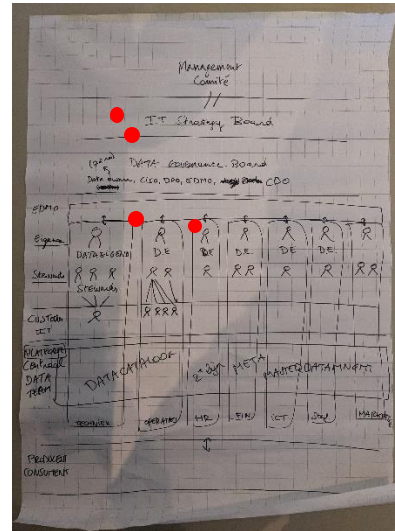 Management
Comité
IT Strategy Board
DATA Governance Board
Data owner, CISO, DPO, EDMO, CDO
EDMO
Eigenaar
DATA EIGENAAR
D.E
D.E
D.E
D.E
D.E.
Stewards
Stewards
CUSTODIAN
IT
PLATFORM
Centraal
DATA
TEAM
DATACATALOOG
META
MASTERDATAMNGMT.
TECHNIEK
OPERATIES
HR
FIN
ICT
MARKETING
PRODUCENT
CONSUMENT